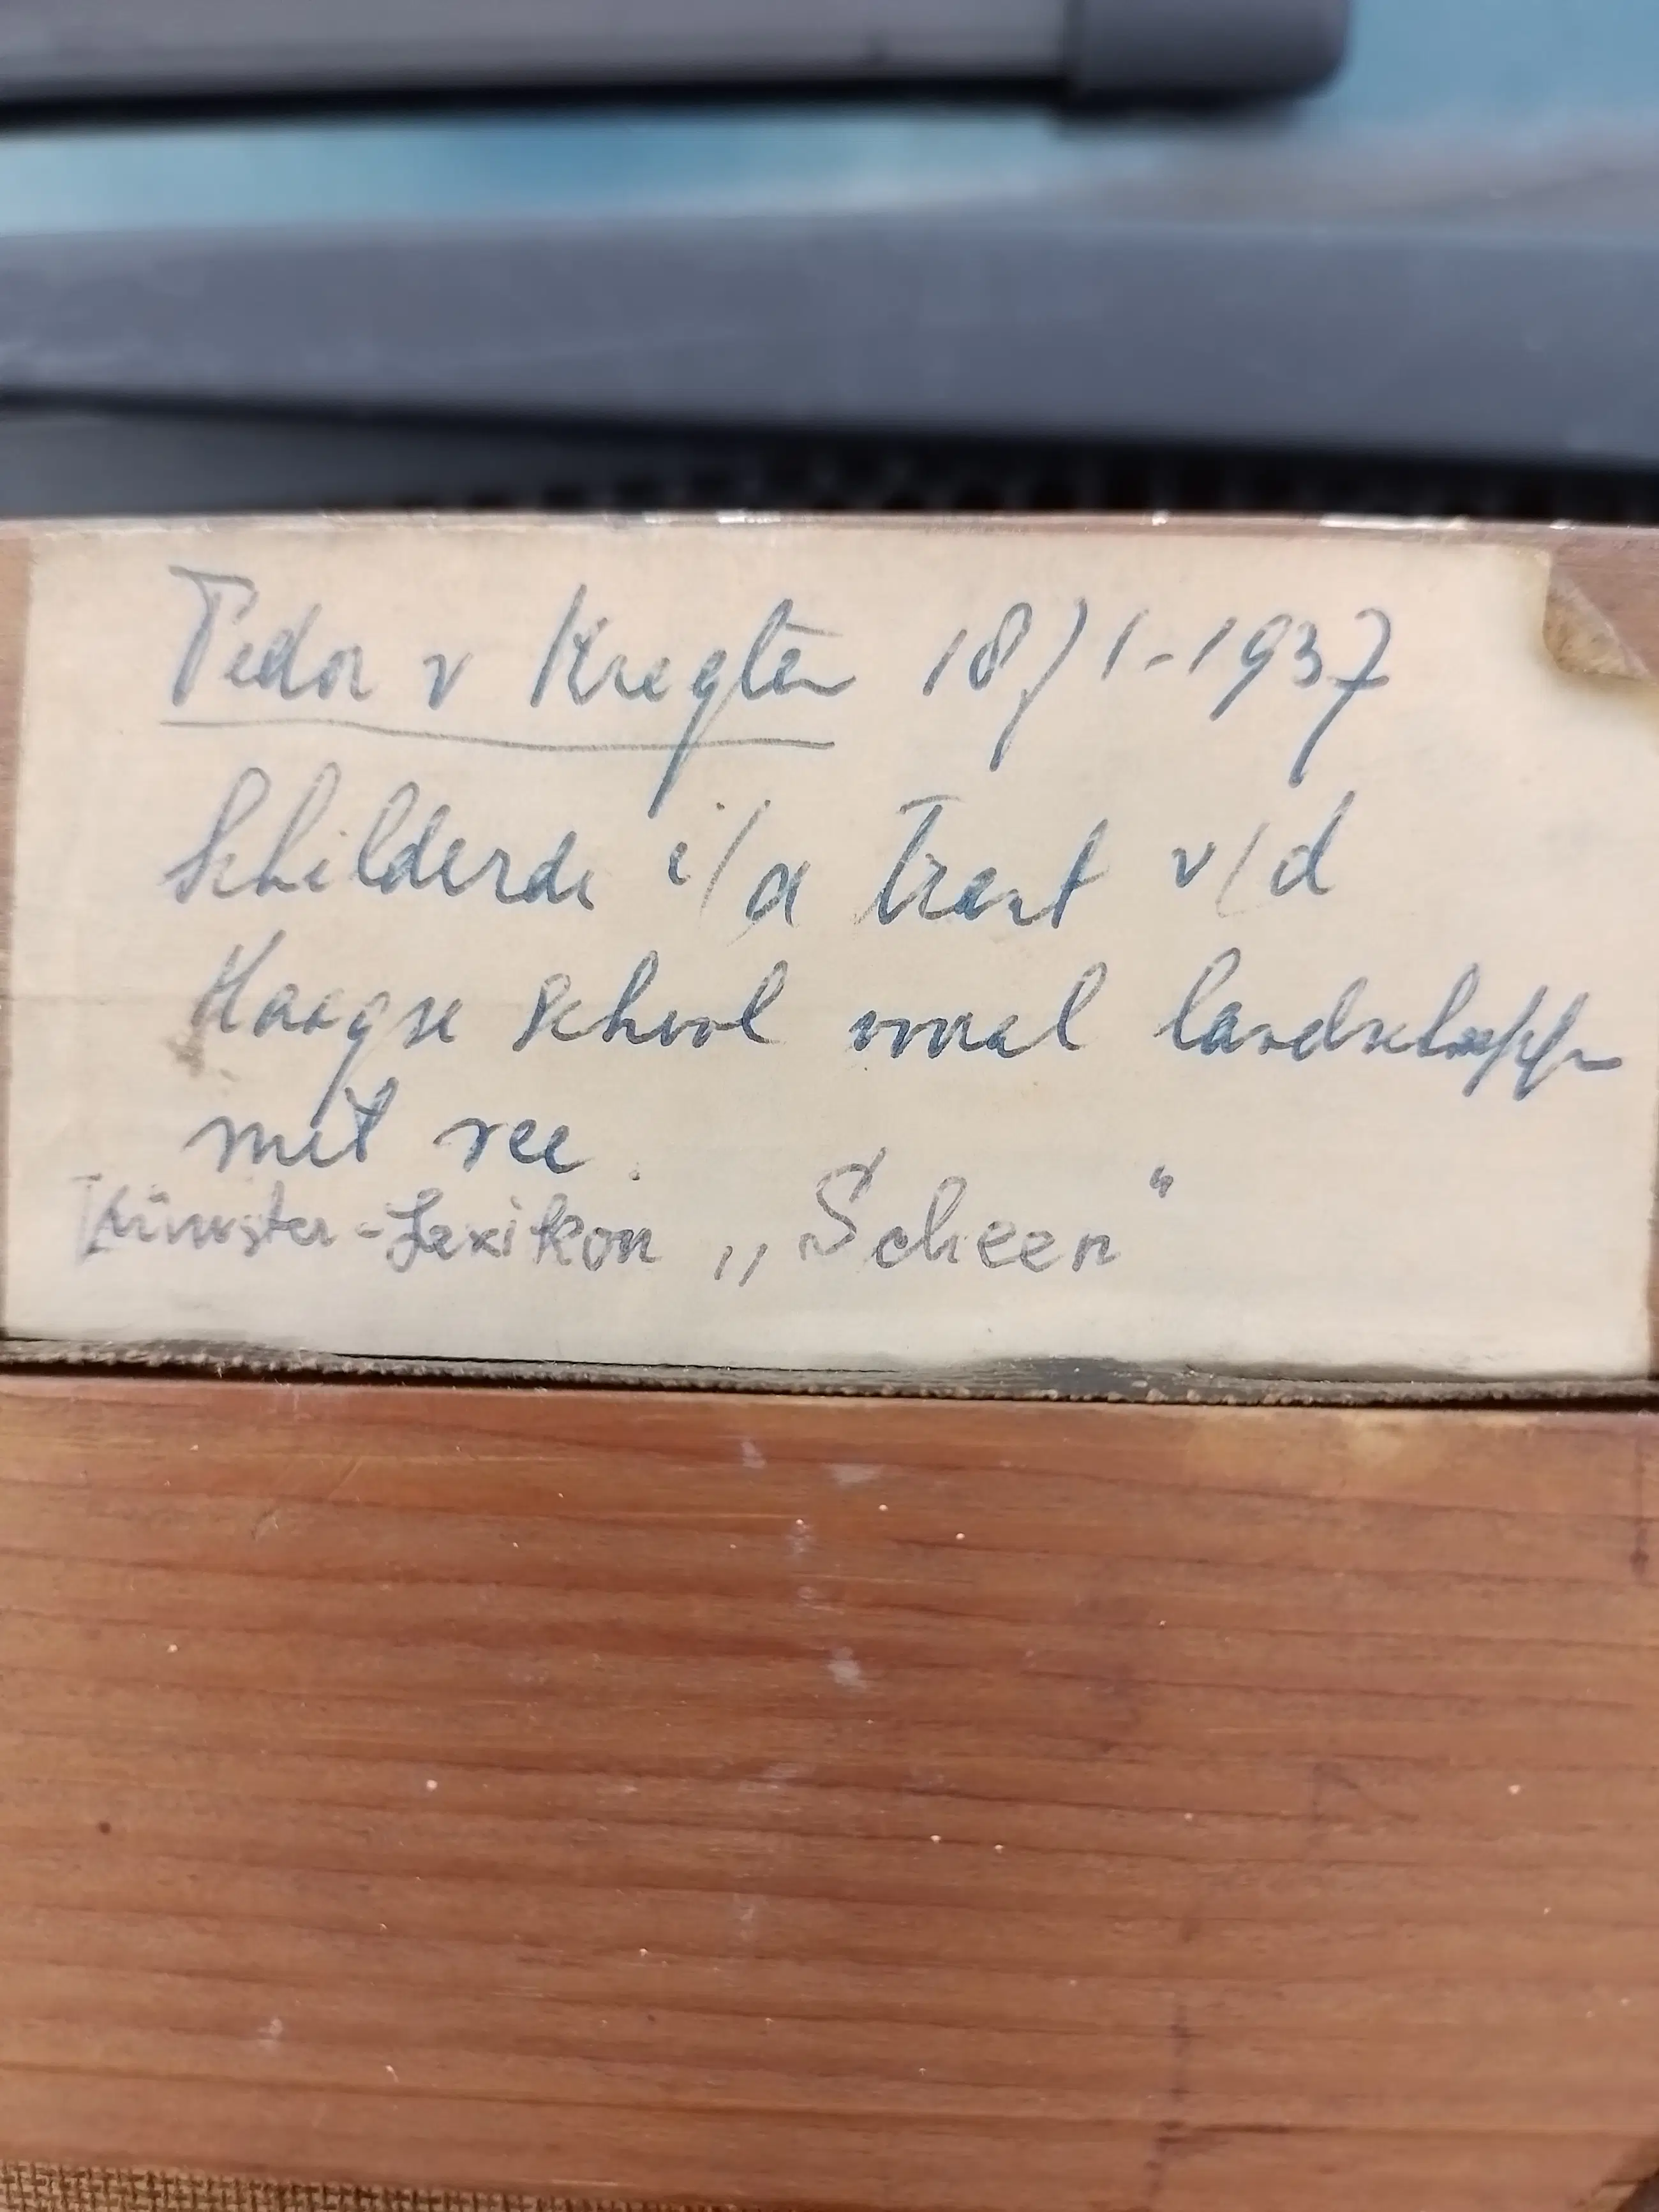 Fedor v Kregten 1871-1937
Schilderde i/d trant v/d
Haagse School vooral landschappen
met vee.
Künster-Lexikon „Scheen“